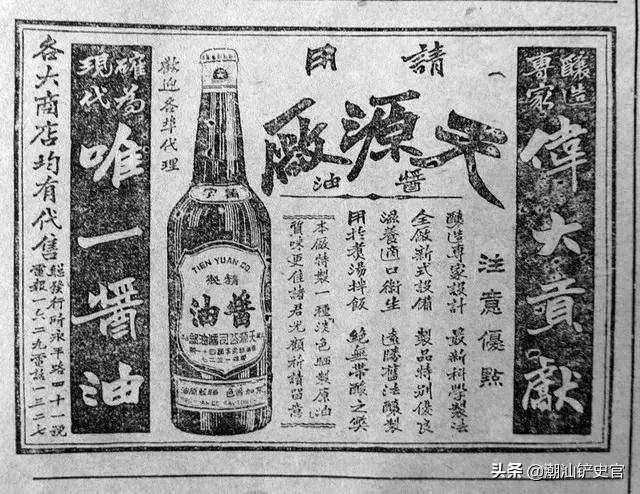 釀造
專家
偉大貢獻
請用
天源廠
醬油
注意優點
釀造專家設計 最新科學製法
全廠新式設備 製品特別優良
滋養適口衛生 遠勝舊法釀製
用於煑湯拌飯 絕無帶酸之弊
本廠特製一種淡色晒製原油
質味更佳諸君光顧祈請留意
TIEN YUAN CO.
精製
醬油
歡迎各埠代理
確為
現代
唯一醬油
各大商店均有代售
總發行所永平路四十一號
電報一六二九電話一三二七
头条 @潮汕铲史官